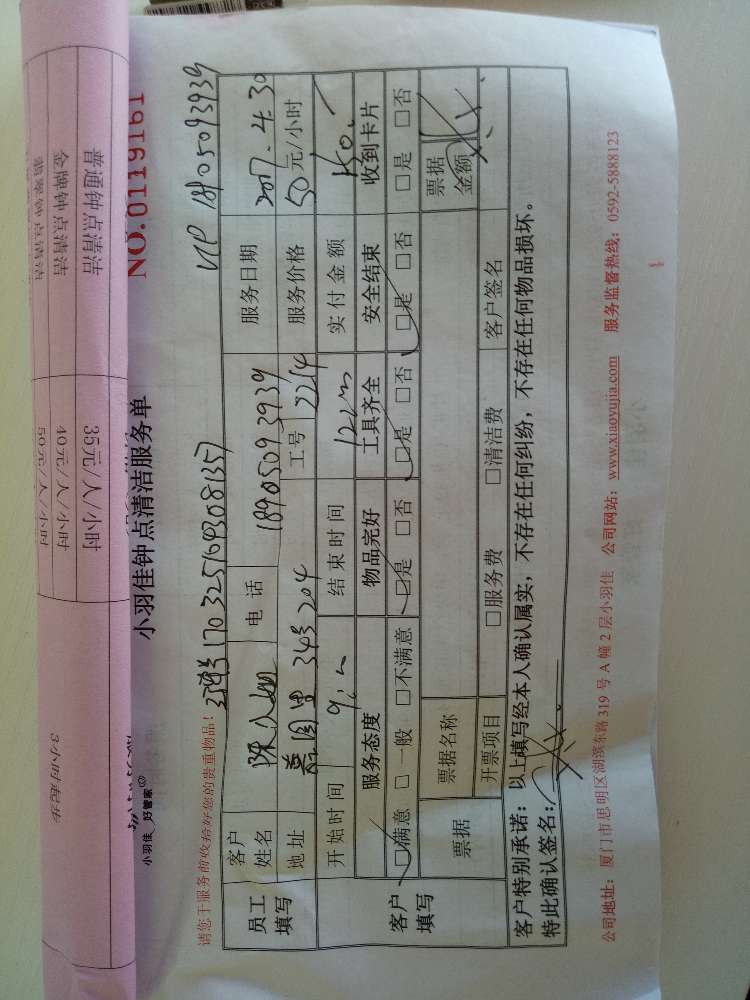 普通钟点清洁 35元/人/小时
金牌钟点清洁 40元/人/小时 3小时起步
50元/人/小时
小羽佳 好管家
小羽佳钟点清洁服务单
NO.0119161
请您于服务前收拾好您的贵重物品!
1703251693081357
VIP 18905093939
员工填写
客户姓名
电话 18905093939
服务日期 2017.4.30
地址 343 204
工号 2214
服务价格 50元/小时
客户填写
开始时间 9:
结束时间 12:
实付金额 150.
服务态度 物品完好 工具齐全 安全结束 收到卡片
□满意 □一般 □不满意 □是 □否 □是 □否 □是 □否 □是 □否
票据 票据名称 票据金额
开票项目 □服务费 □清洁费 客户签名
客户特别承诺:以上填写经本人确认属实,不存在任何纠纷,不存在任何物品损坏。
特此确认签名:
公司地址:厦门市思明区湖滨东路319号A幢2层小羽佳 公司网站:www.xiaoyujia.com 服务监督热线:0592-5888123